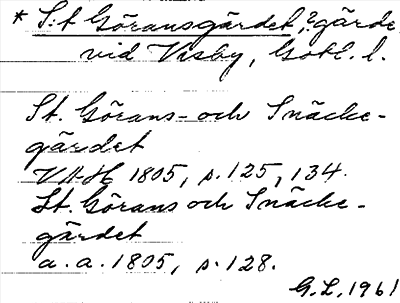 * S:t Göransgärdet, ? gärde
vid Visby, Gotl. l.
St. Görans- och Snäcke-
gärdet
VAH 1805, s. 125, 134.
St. Görans och Snäcke-
gärdet
a. a. 1805, s. 128.
G. L. 1961